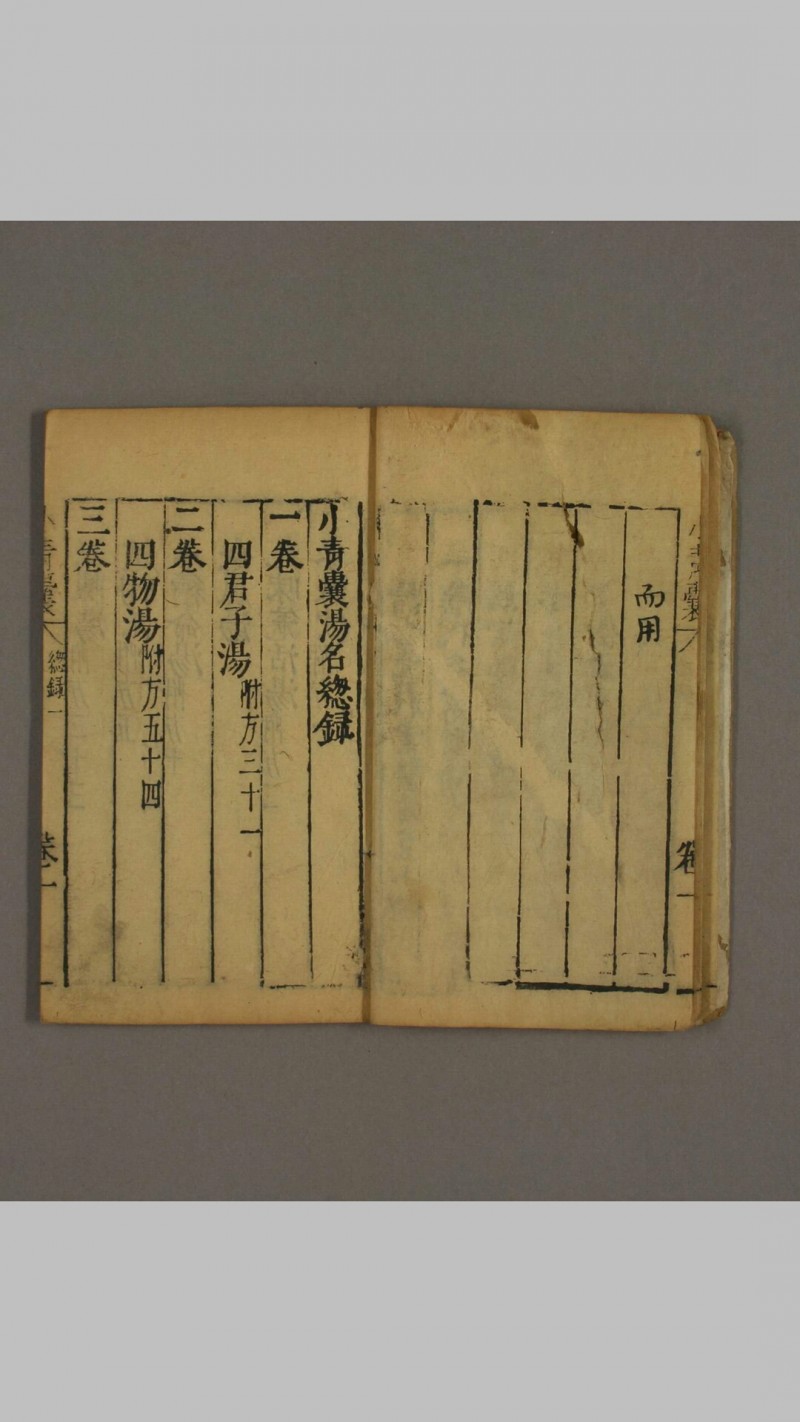 小青囊
卷一
而用
小青囊湯名總録
一卷
四君子湯附方三十一
二卷
四物湯附方五十四
三卷
小青囊
總録一
卷一